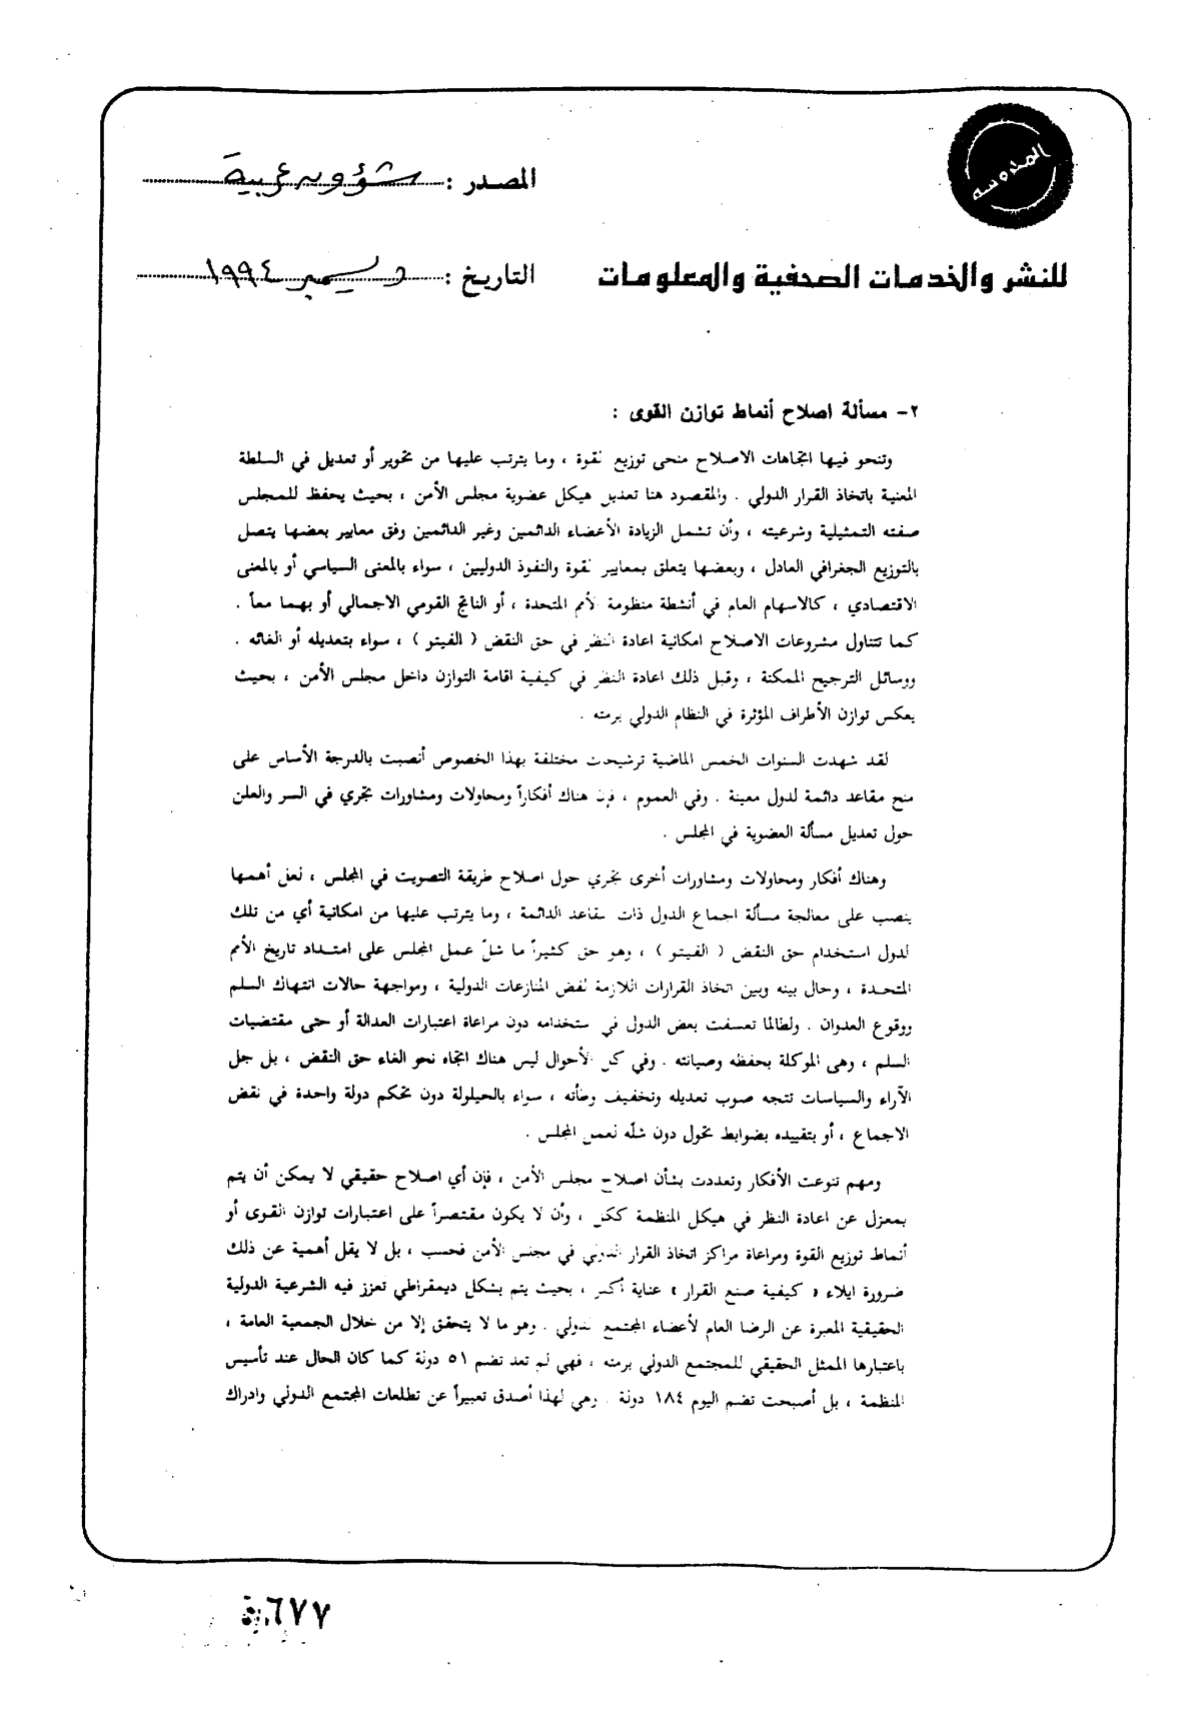 المدوسه
المصدر : شؤون عربية
للنشر والخدمات الصحفية والمعلومات
التاريخ : ديسمبر ١٩٩٤
٢- مسألة اصلاح أنماط توازن القوى :
وتنحو فيها اتجاهات الاصلاح منحى توزيع القوة ، وما يترتب عليها من تحوير أو تعديل في السلطة
المعنية باتخاذ القرار الدولي . والمقصود هنا تعديل هيكل عضوية مجلس الأمن ، بحيث يحفظ للمجلس
صفته التمثيلية وشرعيته ، وأن تشمل الزيادة الأعضاء الدائمين وغير الدائمين وفق معايير بعضها يتصل
بالتوزيع الجغرافي العادل ، وبعضها يتعلق بمعايير القوة والنفوذ الدوليين ، سواء بالمعنى السياسي أو بالمعنى
الاقتصادي ، كالاسهام العام في أنشطة منظومة الأمم المتحدة ، أو الناتج القومي الاجمالي أو بهما معاً .
كما تتناول مشروعات الاصلاح امكانية اعادة النظر في حق النقض ( الفيتو ) ، سواء بتعديله أو الغائه .
ووسائل الترجيح الممكنة ، وقبل ذلك اعادة النظر في كيفية اقامة التوازن داخل مجلس الأمن ، بحيث
يعكس توازن الأطراف المؤثرة في النظام الدولي برمته .
لقد شهدت السنوات الخمس الماضية ترشيحات مختلفة بهذا الخصوص أنصبت بالدرجة الأساس على
منح مقاعد دائمة لدول معينة . وفي العموم ، فإن هناك أفكاراً ومحاولات ومشاورات تجري في السر والعلن
حول تعديل مسألة العضوية في المجلس .
وهناك أفكار ومحاولات ومشاورات أخرى تجري حول اصلاح طريقة التصويت في المجلس ، لعل أهمها
ينصب على معالجة مسألة اجماع الدول ذات المقاعد الدائمة ، وما يترتب عليها من امكانية أي من تلك
الدول استخدام حق النقض ( الفيتو ) ، وهو حق كثيراً ما شلّ عمل المجلس على امتداد تاريخ الأمم
المتحدة ، وحال بينه وبين اتخاذ القرارات اللازمة لفض المنازعات الدولية ، ومواجهة حالات انتهاك السلم
ووقوع العدوان . ولطالما تعسفت بعض الدول في استخدامه دون مراعاة اعتبارات العدالة أو حتى مقتضيات
السلم ، وهى الموكلة بحفظه وصيانته . وفي كل الأحوال ليس هناك اتجاه نحو الغاء حق النقض ، بل جل
الآراء والسياسات تتجه صوب تعديله وتخفيف وطأته ، سواء بالحيلولة دون تحكم دولة واحدة في نقض
الاجماع ، أو بتقييده بضوابط تحول دون شلّه لعمل المجلس .
ومهم تنوعت الأفكار وتعددت بشأن اصلاح مجلس الأمن ، فإن أي اصلاح حقيقي لا يمكن أن يتم
بمعزل عن اعادة النظر في هيكل المنظمة ككل ، وأن لا يكون مقتصراً على اعتبارات توازن القوى أو
أنماط توزيع القوة ومراعاة مراكز اتخاذ القرار الدولي في مجلس الأمن فحسب ، بل لا يقل أهمية عن ذلك
ضرورة ايلاء « كيفية صنع القرار » عناية أكبر ، بحيث يتم بشكل ديمقراطي تعزز فيه الشرعية الدولية
الحقيقية المعبرة عن الرضا العام لأعضاء المجتمع الدولي . وهو ما لا يتحقق إلا من خلال الجمعية العامة ،
باعتبارها الممثل الحقيقي للمجتمع الدولي برمته ، فهي لم تعد تضم ٥١ دولة كما كان الحال عند تأسيس
المنظمة ، بل أصبحت تضم اليوم ١٨٤ دولة . وهي لهذا أصدق تعبيراً عن تطلعات المجتمع الدولي وادراك
٦٧٧